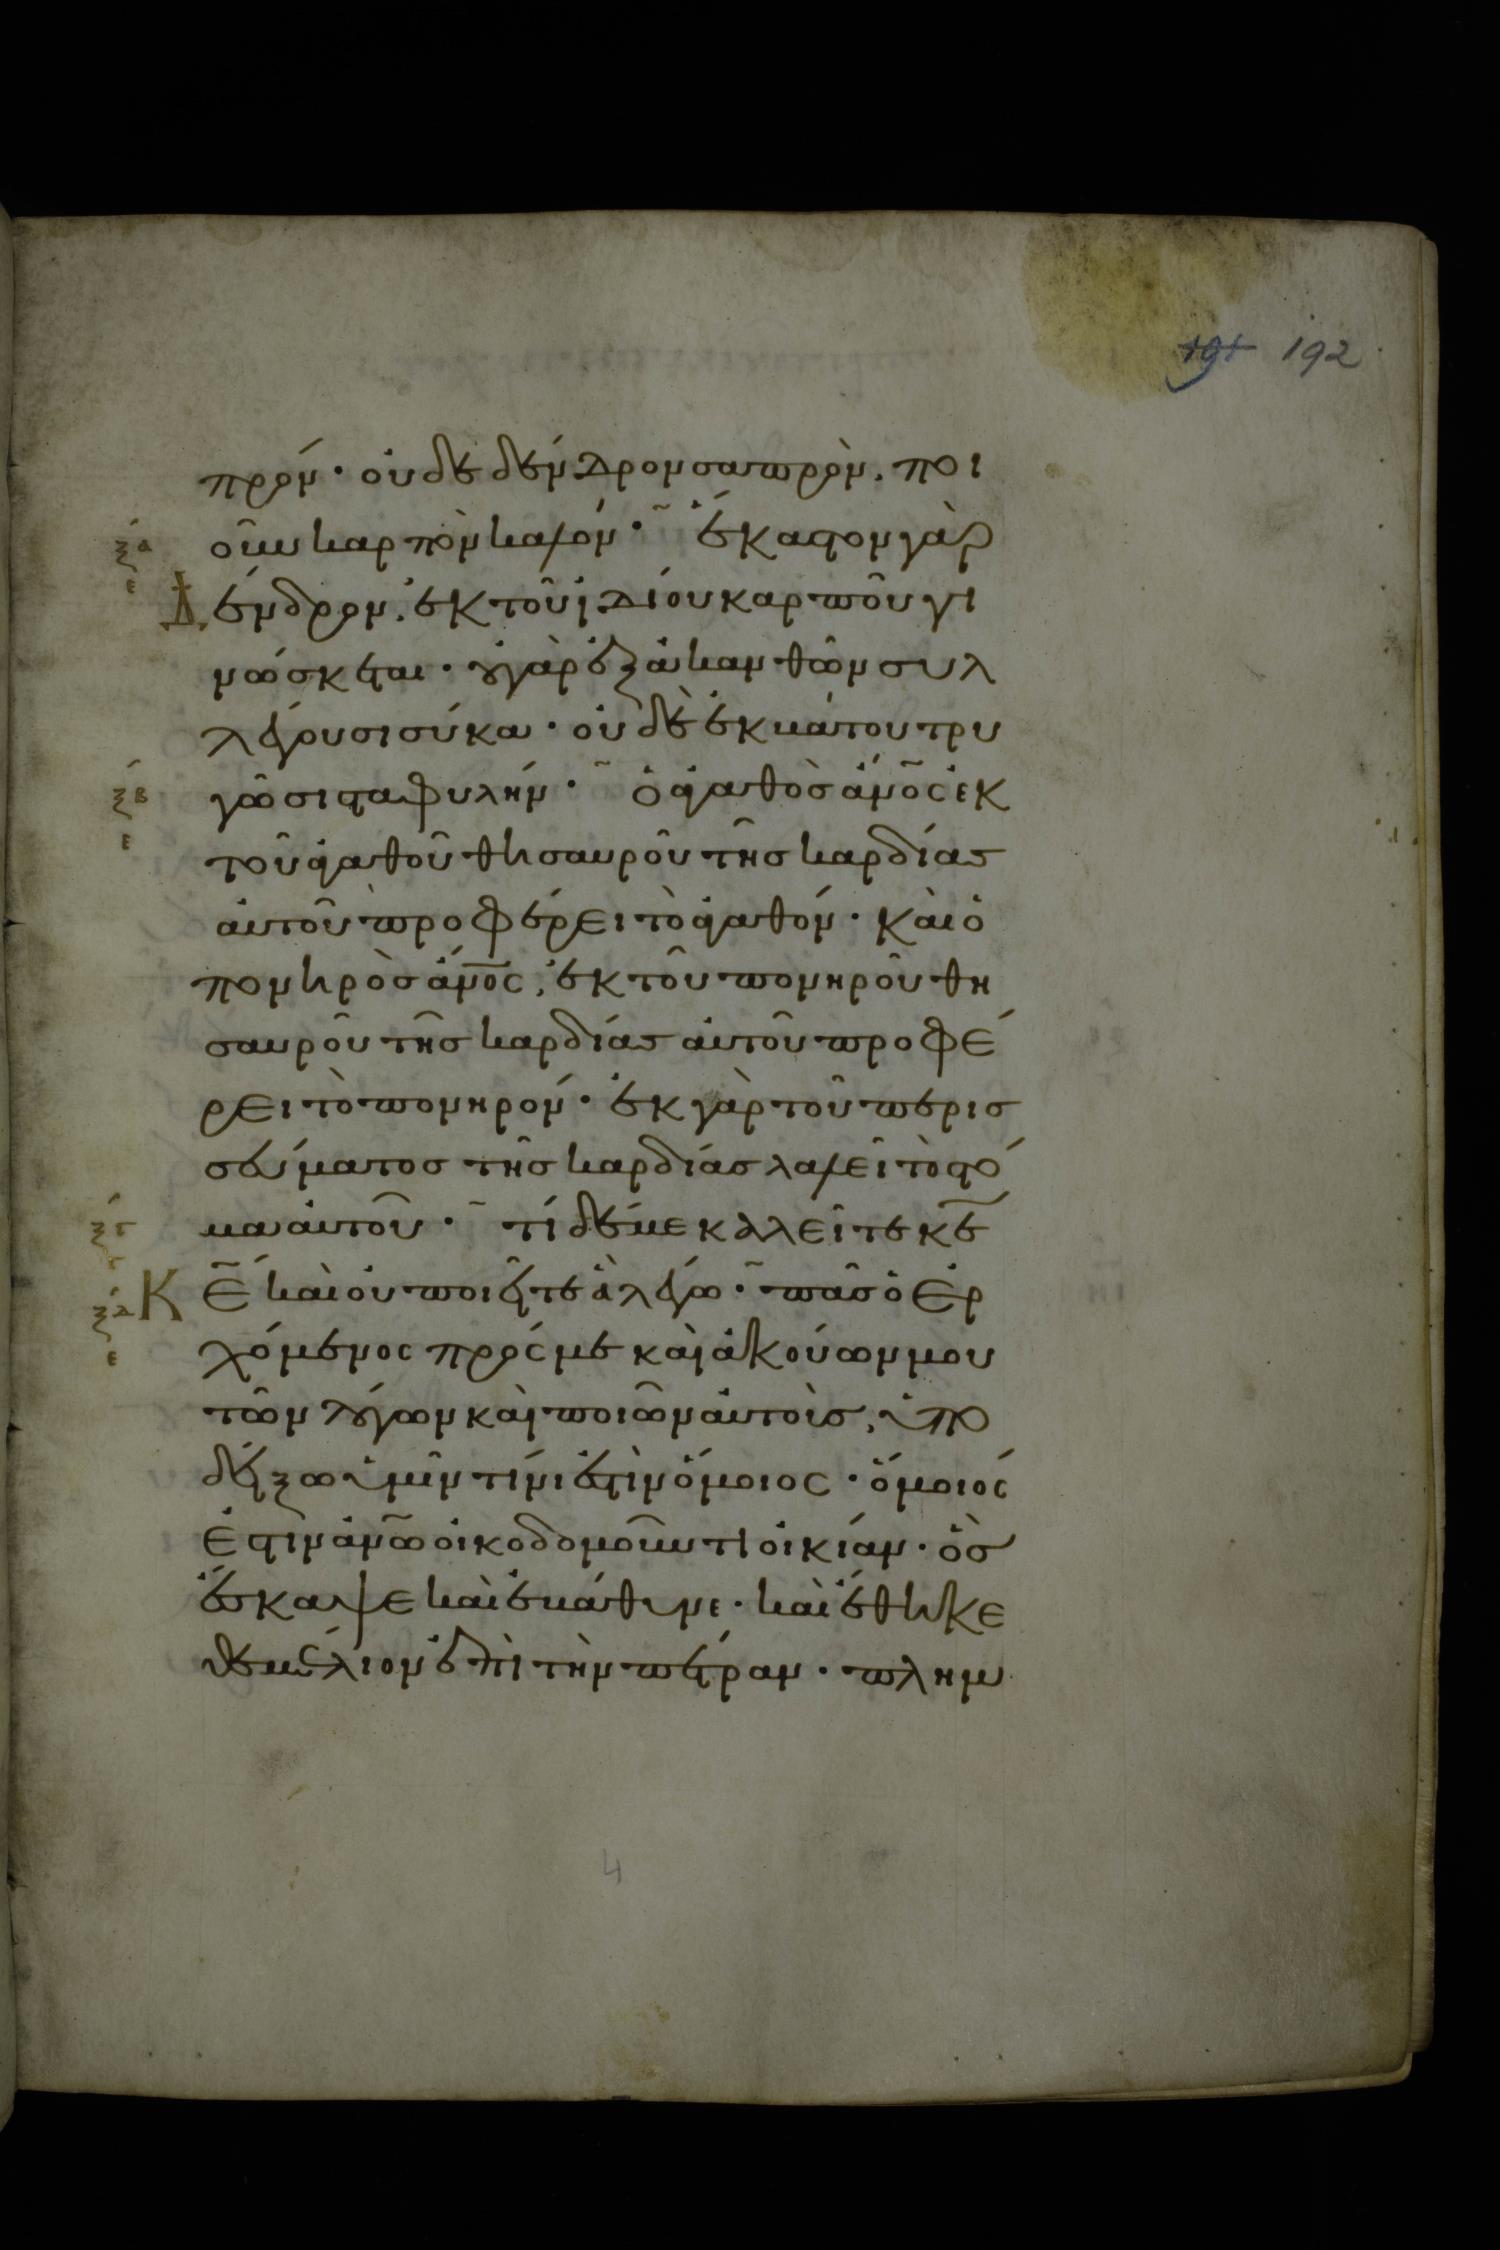 191 192
πρόν · οὐδὲ δένδρον σαπρὸν, ποι
οῦν καρπὸν καλόν · ἕκαστον γὰρ
ξα
ε
Δ ένδρον, ἐκ τοῦ ἰδίου καρποῦ γι
νώσκεται · οὐ γὰρ ἐξ ἀκανθῶν συλ
λέγουσι σύκα · οὐδὲ ἐκ βάτου τρυ
γῶσι σταφυλήν · ὁ ἀγαθὸς ἄνο̅ς ἐκ
ξβ
ε
τοῦ ἀγαθοῦ θησαυροῦ τῆς καρδίας
αὐτοῦ προφέρει τὸ ἀγαθόν · καὶ ὁ
πονηρὸς ἄνο̅ς, ἐκ τοῦ πονηροῦ θη
σαυροῦ τῆς καρδίας αὐτοῦ προφέ
ρει τὸ πονηρόν · ἐκ γὰρ τοῦ περισ
σεύματος τῆς καρδίας λαλεῖ τὸ στό
μα αὐτοῦ · τί δέ με καλεῖτε κε̅
ξγ
Κ ε̅ καὶ οὐ ποιεῖτε ἃ λέγω · πᾶς ὁ ἐρ
ξδ
ε
χόμενος πρός με καὶ ἀκούων μου
τῶν λόγων καὶ ποιῶν αὐτοὺς, ὑπο
δείξω ὑμῖν τίνι ἐστὶν ὅμοιος · ὅμοιός
ἐστιν ἀνω̅ οἰκοδομοῦντι οἰκίαν · ὃς
ἔσκαψε καὶ ἐβάθυνε · καὶ ἔθηκε
θεμέλιον ἐπὶ τὴν πέτραν · πλημ
4